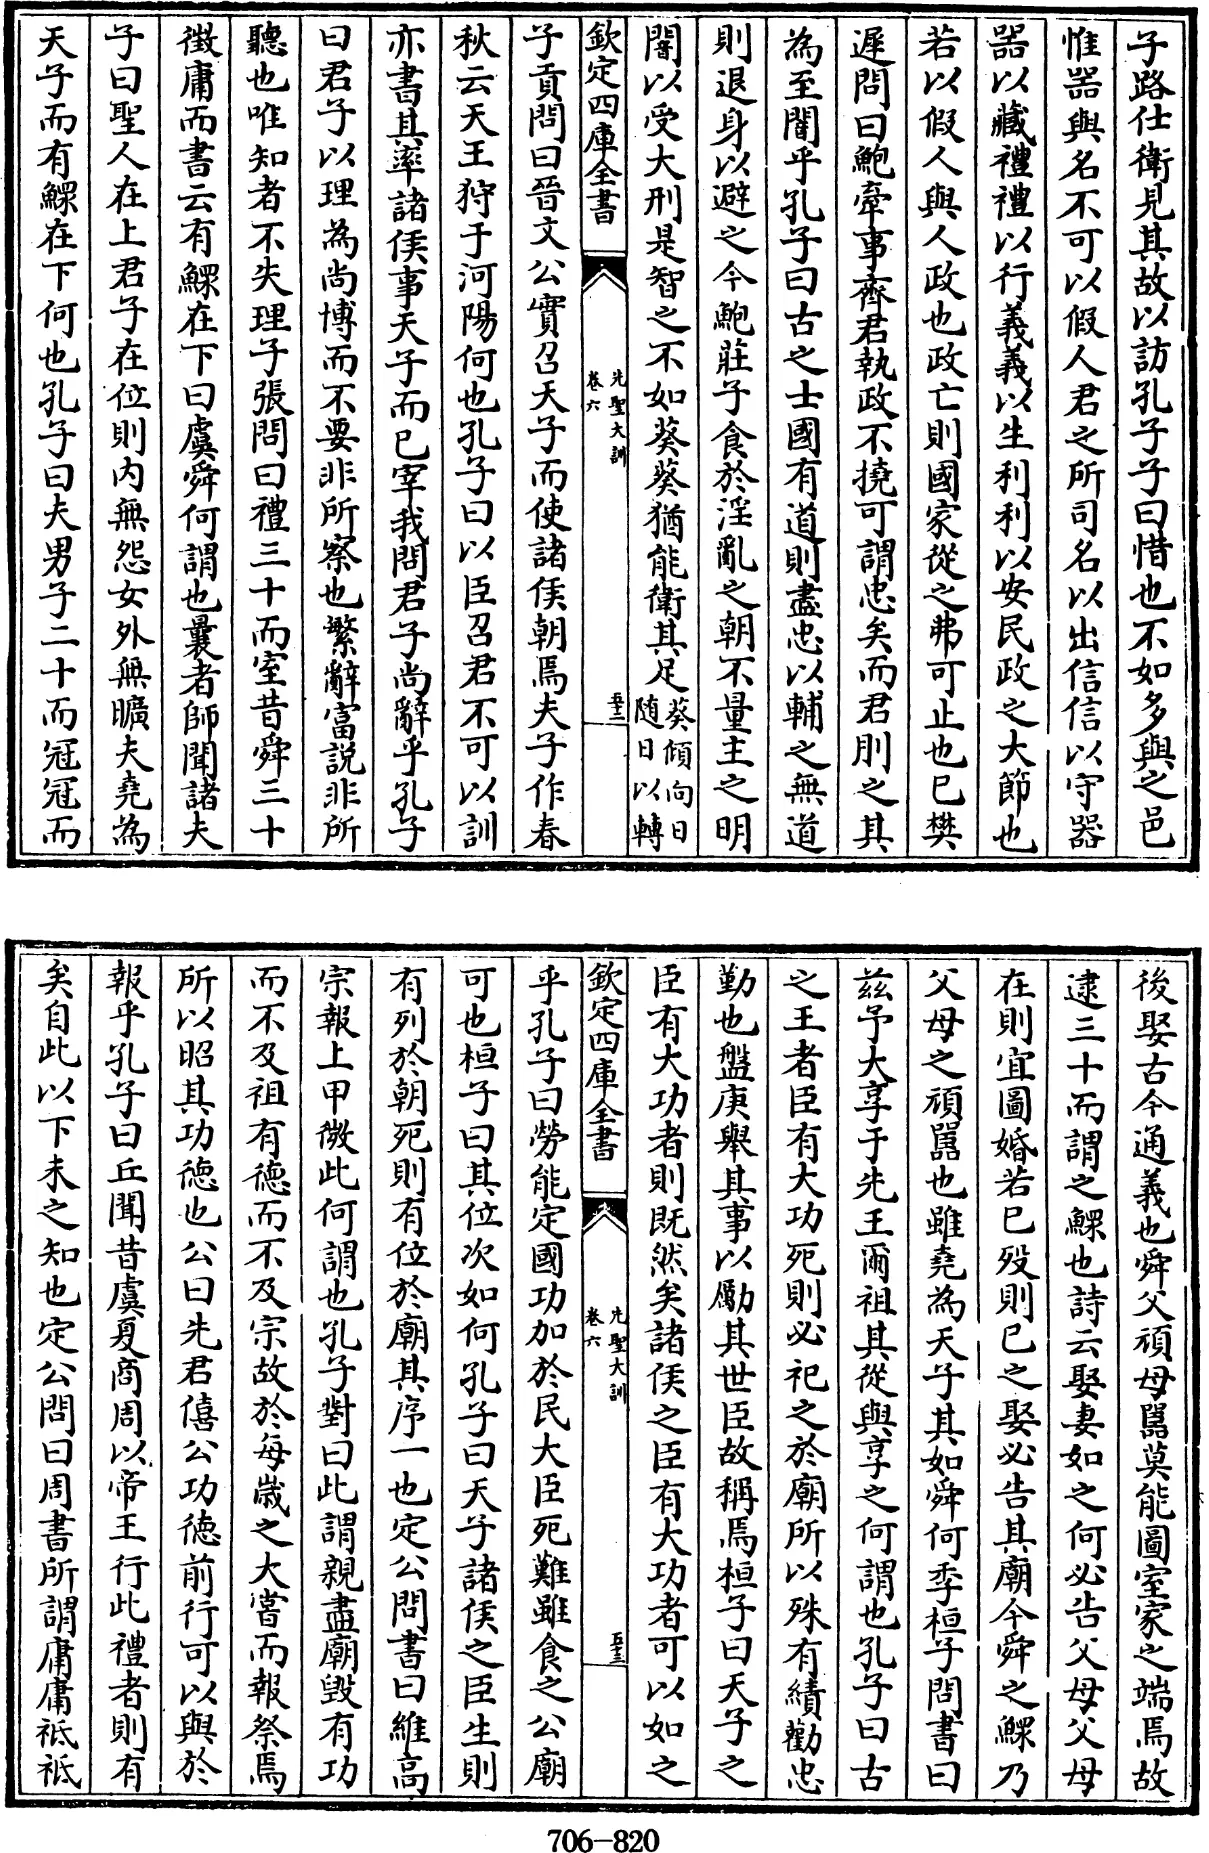 子路仕衛見其故以訪孔子子曰惜也不如多與之邑
惟器與名不可以假人君之所司名以出信信以守器
器以藏禮禮以行義義以生利利以安民政之大節也
若以假人與人政也政亡則國家從之弗可止也已樊
遲問曰鮑牽事齊君執政不撓可謂忠矣而君刖之其
為至闇乎孔子曰古之士國有道則盡忠以輔之無道
則退身以避之今鮑莊子食於淫亂之朝不量主之明
闇以受大刑是智之不如葵葵猶能衛其足葵傾向日
隨日以轉
欽定四庫全書
先聖大訓
卷六
五十二
子貢問曰晉文公實召天子而使諸侯朝焉夫子作春
秋云天王狩于河陽何也孔子曰以臣召君不可以訓
亦書其率諸侯事天子而已宰我問君子尚辭乎孔子
曰君子以理為尚博而不要非所察也繁辭富說非所
聽也唯知者不失理子張問曰禮三十而室昔舜三十
徵庸而書云有鰥在下曰虞舜何謂也曩者師聞諸夫
子曰聖人在上君子在位則內無怨女外無曠夫堯為
天子而有鰥在下何也孔子曰夫男子二十而冠冠而
後娶古今通義也舜父頑母嚚莫能圖室家之端焉故
逮三十而謂之鰥也詩云娶妻如之何必告父母父母
在則宜圖婚若已歿則已之娶必告其廟今舜之鰥乃
父母之頑嚚也雖堯為天子其如舜何季桓子問書曰
茲予大享于先王爾祖其從與享之何謂也孔子曰古
之王者臣有大功死則必祀之於廟所以殊有績勸忠
勤也盤庚舉其事以勵其世臣故稱焉桓子曰天子之
臣有大功者則既然矣諸侯之臣有大功者可以如之
欽定四庫全書
先聖大訓
卷六
五十三
乎孔子曰勞能定國功加於民大臣死難雖食之公廟
可也桓子曰其位次如何孔子曰天子諸侯之臣生則
有列於朝死則有位於廟其序一也定公問書曰維高
宗報上甲微此何謂也孔子對曰此謂親盡廟毀有功
而不及祖有德而不及宗故於每歲之大嘗而報祭焉
所以昭其功德也公曰先君僖公功德前行可以與於
報乎孔子曰丘聞昔虞夏商周以帝王行此禮者則有
矣自此以下未之知也定公問曰周書所謂庸庸祗祗
706-820